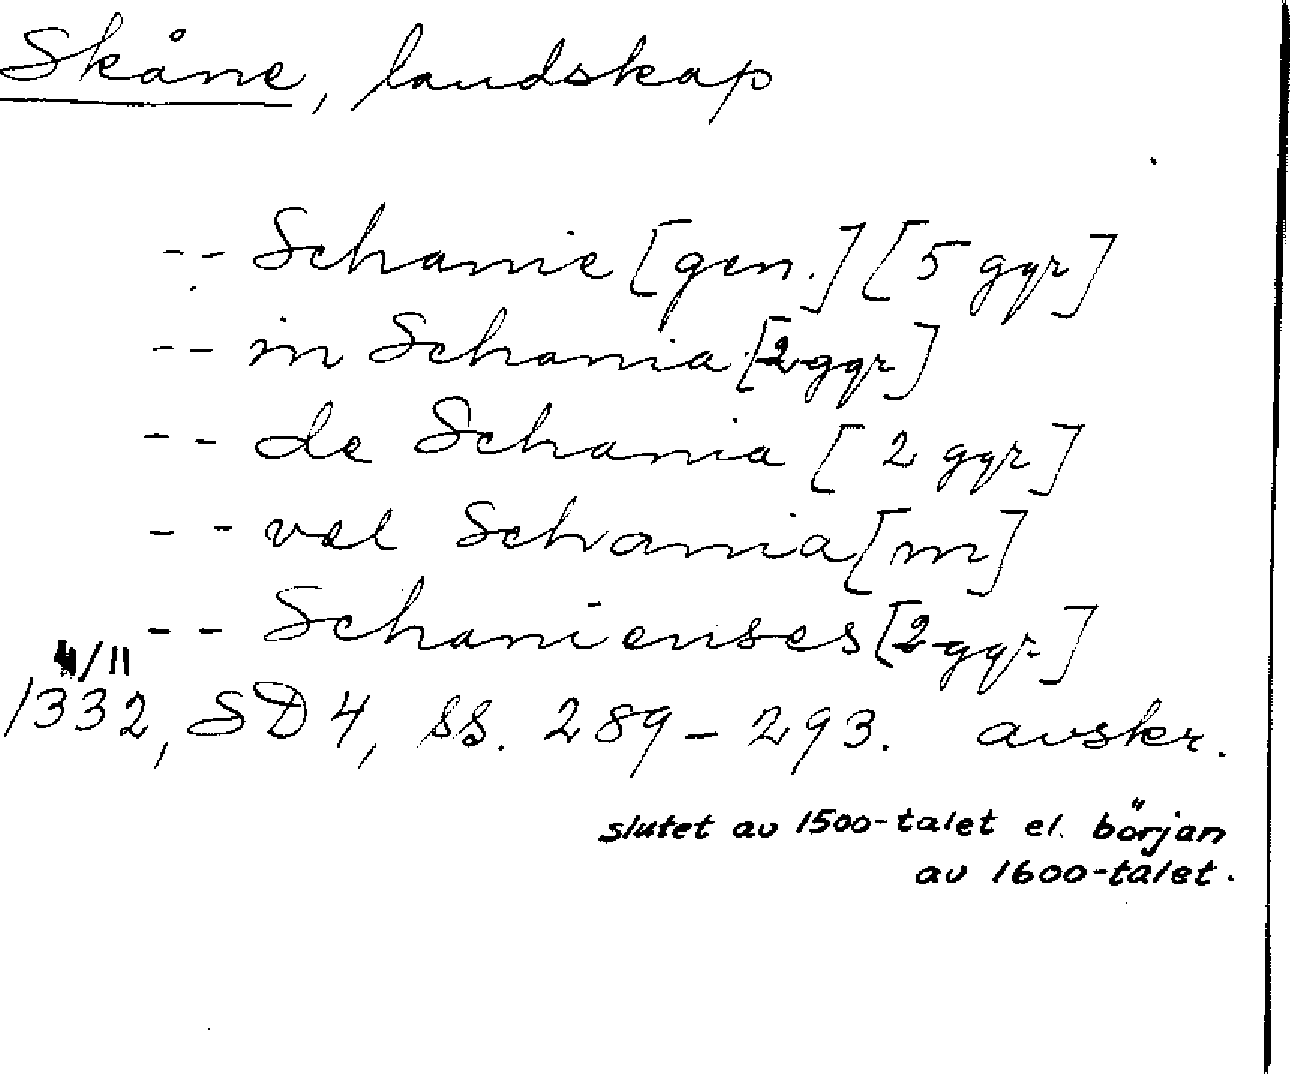 Skåne, landskap
-- Schanie [gen.] [5 ggr]
-- in Schania [2 ggr]
-- de Schania [2 ggr]
-- vel Schania [m]
-- Schanienses [2 ggr]
4/11
1332, SD 4, ss. 289-293. avskr.
slutet av 1500-talet el. början
av 1600-talet.